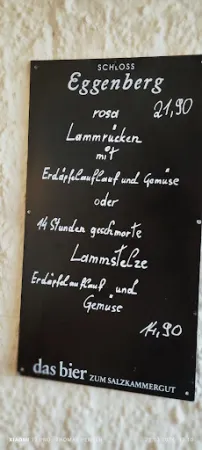 SCHLOSS
Eggenberg
rosa 21,90
Lammrücken
mit
Erdäpfelauflauf und Gemüse
oder
14 Stunden geschmorte
Lammstelze
Erdäpfelauflauf und
Gemüse
14,90
das bier ZUM SALZKAMMERGUT